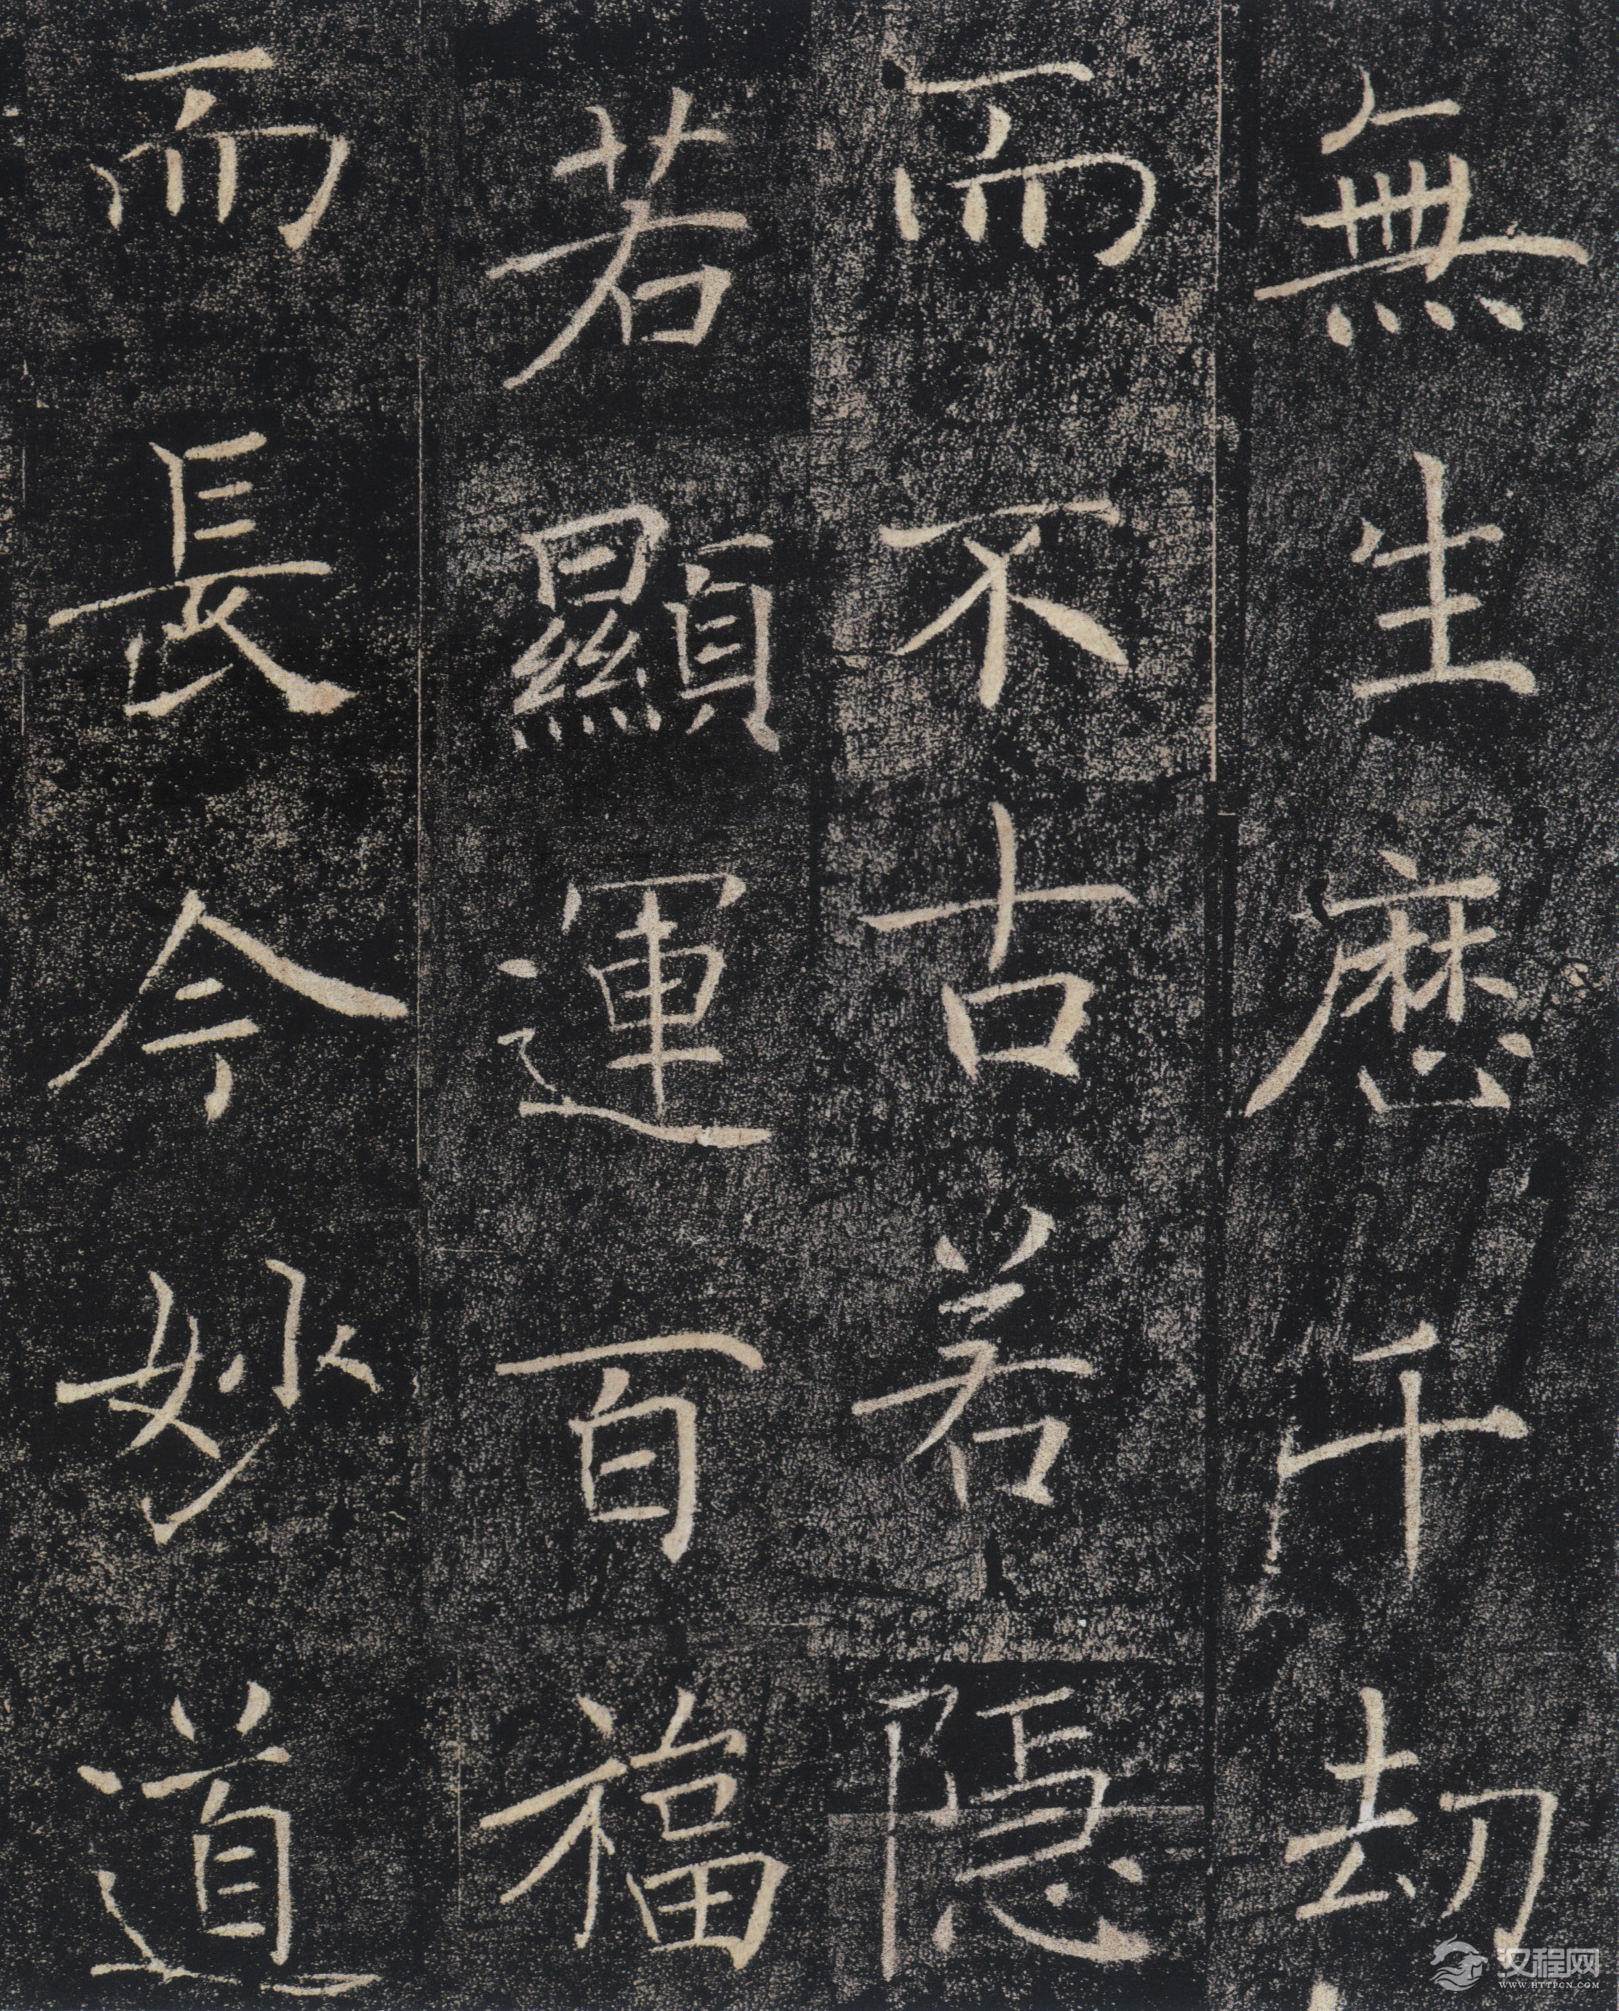 無生歷千劫
而不古若隱
若顯運百福
而長今妙道
汉程网
WWW.HTTPCN.COM